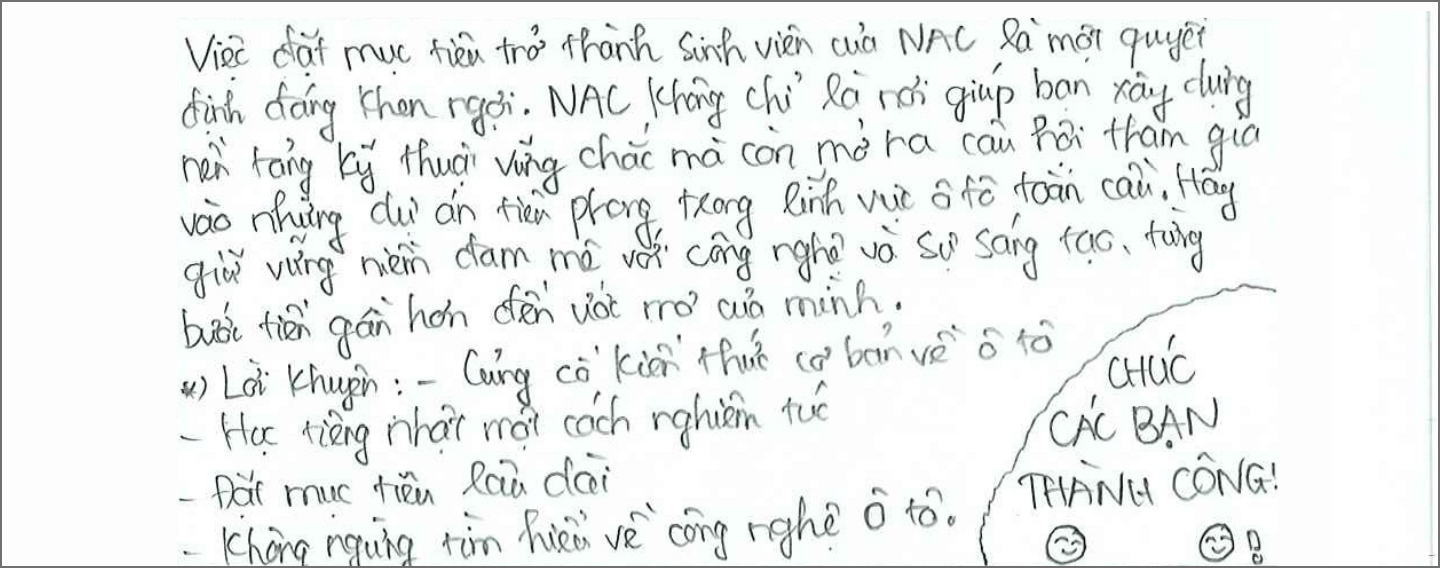 Việc đặt mục tiêu trở thành sinh viên của NAC là một quyết
định đáng khen ngợi. NAC không chỉ là nơi giúp bạn xây dựng
nền tảng kỹ thuật vững chắc mà còn mở ra câu hỏi tham gia
vào những dự án tiên phong trong lĩnh vực ô tô toàn cầu. Hãy
giữ vững niềm đam mê với công nghệ và sự sáng tạo, từng
bước tiến gần hơn đến ước mơ của mình.
*) Lời khuyên : - Củng cố kiến thức cơ bản về ô tô
- Học tiếng nhật một cách nghiêm túc
- Đặt mục tiêu lâu dài
- Không ngừng tìm hiểu về công nghệ ô tô.
CHÚC
CÁC BẠN
THÀNH CÔNG!